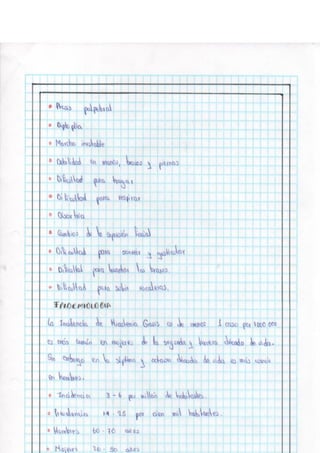 • Ptosis palpebral
• Diplopia
• Marcha inestable
• Debilidad en manos, brazos y piernas
• Dificultad para tragar
• Dificultad para respirar
• Disartria
• Cambios de la expresión facial
• Dificultad para sonreír y gesticular
• Dificultad para levantar los brazos
• Dificultad para subir escaleras.
EPIDEMIOLOGIA
La Incidencia de Miastenia Gravis es de menos 1 caso por
es más común en mujeres de la segunda y tercera década de vida.
Sin embargo en la séptima y octava década de vida es más común
en hombres.
• Incidencia 3 - 6 por millón de habitantes.
• Prevalencia 14 - 25 por cien mil habitantes.
• Hombres 60 - 70 años
• Mujeres 20 - 30 años